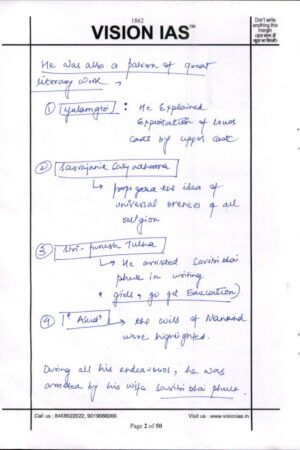 1862
VISION IAS™
Don't write
anything this
margin
He was also a patron of great
literary work →
① Gulamgiri : He Explained
Exploitation of lower
caste by upper caste
② Sarvajanik Satyadharma
↳ propogated the idea of
universal oneness of all
religion
③ Stri-purush Tulna
↳ He assisted Savitribai
phule in writing
" girls, go get Education)
④ "Asud" ↳ the evils of Mankind
were highlighted.
During all his endeavours, he was
by his wife Savitribai phule.
Call us : 8468022022, 9019066066
Visit us : www.visionias.in
Page 2 of 50